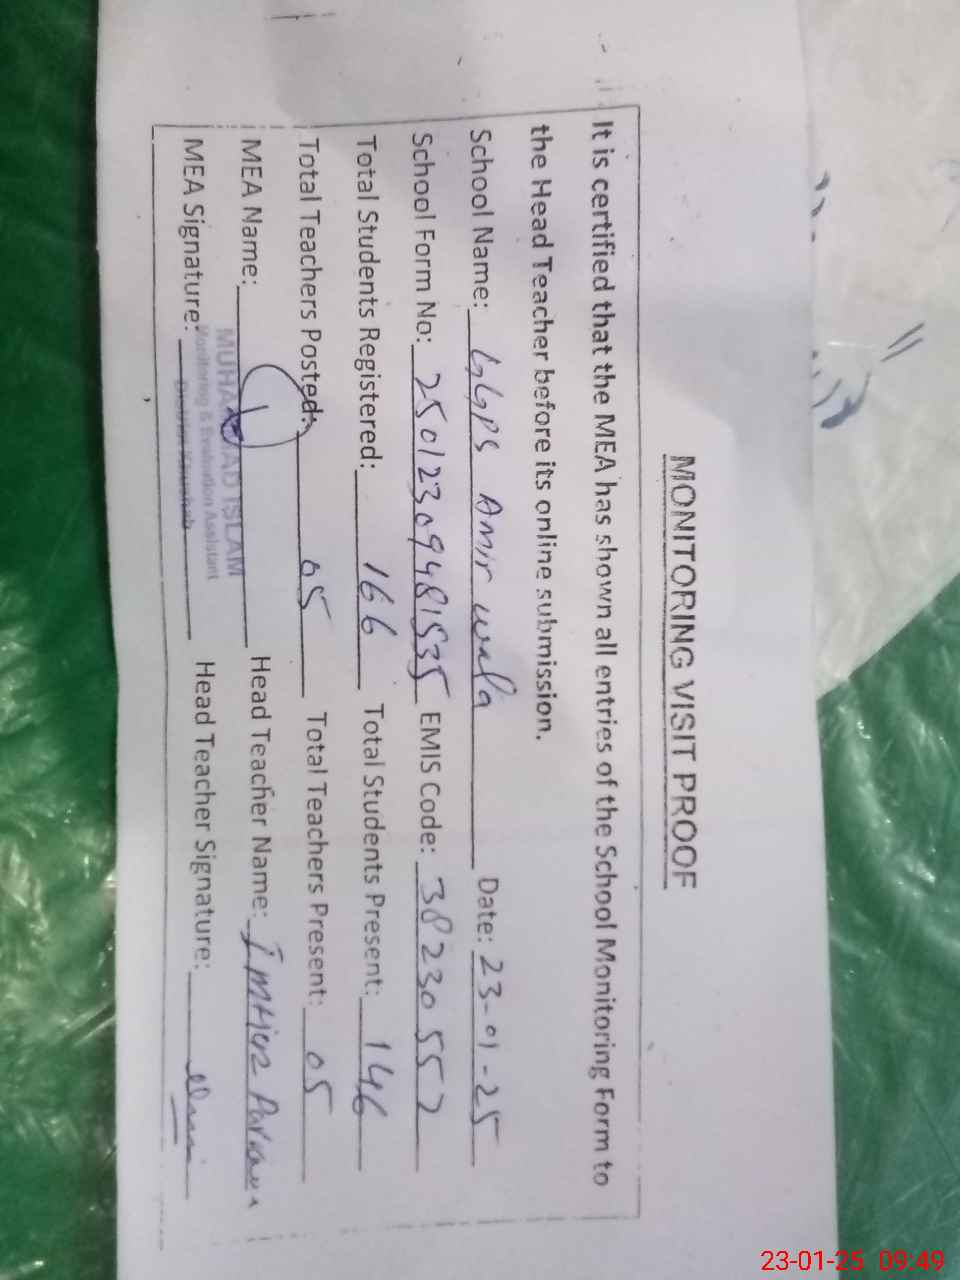 MONITORING VISIT PROOF
It is certified that the MEA has shown all entries of the School Monitoring Form to
the Head Teacher before its online submission.
School Name: GGPS Amir wala Date: 23-01-25
School Form No: 25012309481535 EMIS Code: 38230552
Total Students Registered: 166 Total Students Present: 146
Total Teachers Posted: 05 Total Teachers Present: 05
MEA Name: Head Teacher Name: Imtiaz Parveen
MUHAMMAD ISLAM
Monitoring & Evaluation Assistant
District Khushab
MEA Signature: Head Teacher Signature:
23-01-25 09:49